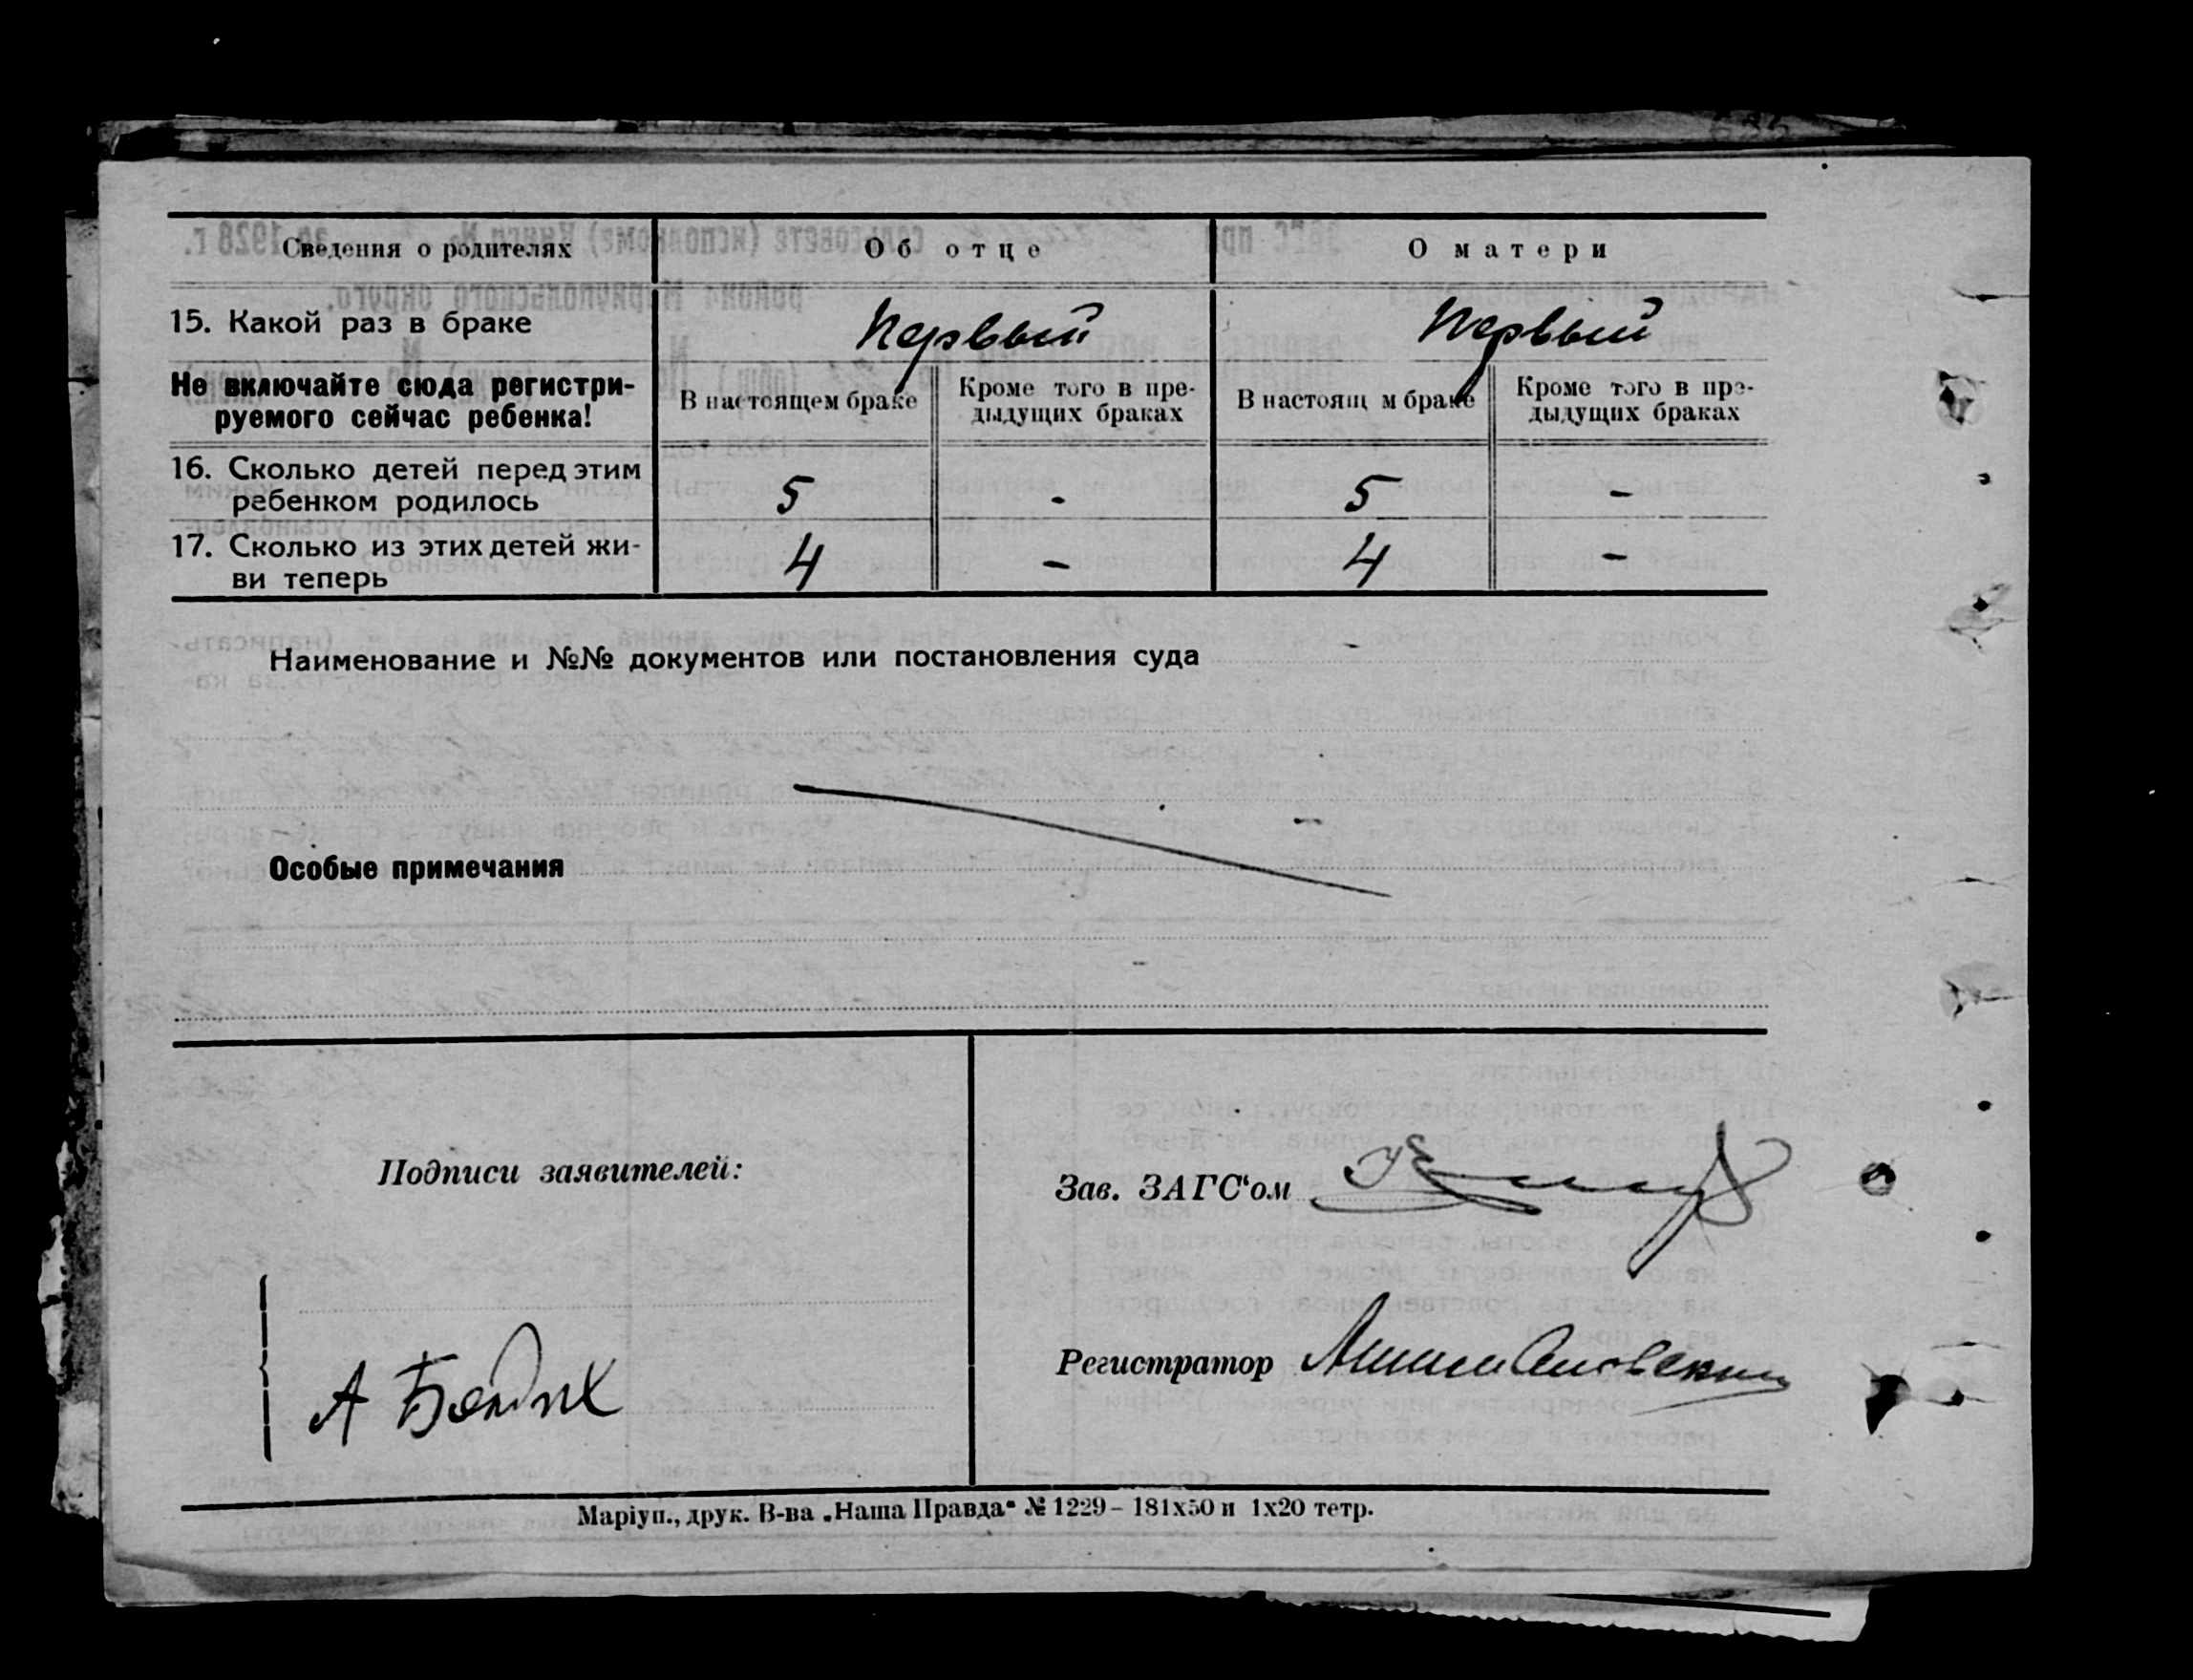 Сведения о родителях
Об отце
О матери
15. Какой раз в браке
Первый
Первый
Не включайте сюда регистри-
руемого сейчас ребенка!
В настоящем браке
Кроме того в пре-
дыдущих браках
В настоящ м браке
Кроме того в пре-
дыдущих браках
16. Сколько детей перед этим
ребенком родилось
5
-
5
-
17. Сколько из этих детей жи-
ви теперь
4
-
4
-
Наименование и №№ документов или постановления суда
-
Особые примечания
Подписи заявителей:
Зав. ЗАГС'ом
Регистратор
А
Маріуп., друк. В-ва „Наша Правда“ № 1229 – 181х50 и 1х20 тетр.